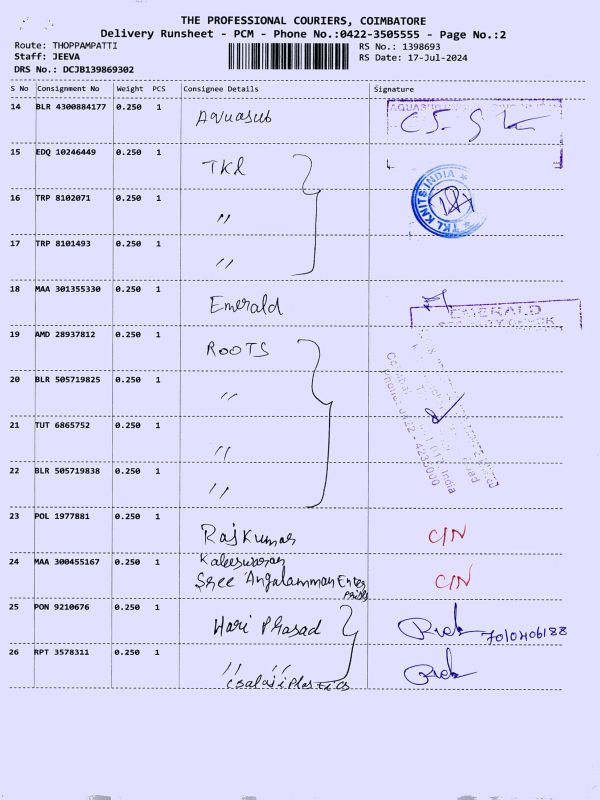 THE PROFESSIONAL COURIERS, COIMBATORE
Delivery Runsheet - PCM - Phone No.:0422-3505555 - Page No.:2
Route: THOPPAMPATTI
RS No.: 1398693
Staff: JEEVA
RS Date: 17-Jul-2024
DRS No.: DCJB139869302
S No Consignment No Weight PCS Consignee Details Signature
14 BLR 4300884177 0.250 1 Aquasub
15 EDQ 10246449 0.250 1 TKL
TKL KNITS INDIA
16 TRP 8102071 0.250 1 "
17 TRP 8101493 0.250 1 "
18 MAA 301355330 0.250 1 Emerald
EMERALD
19 AMD 28937812 0.250 1 ROOTS
20 BLR 505719825 0.250 1 "
21 TUT 6865752 0.250 1 "
22 BLR 505719838 0.250 1 "
India
Phone: 0422 - 4235000
23 POL 1977881 0.250 1 Rajkumar C/N
24 MAA 300455167 0.250 1 Kaleeswaran
Sree Angalamman Enter C/N
prises
25 PON 9210676 0.250 1 Hari Prasad
26 RPT 3578311 0.250 1 " "